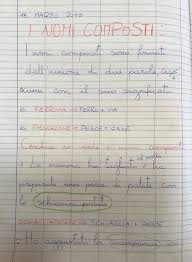 18 MARZO 2010
I NOMI COMPOSTI:
I nomi composti sono formati
dall'unione di due parole,
uno con il suo significato.
ES FERROVIA = FERRO + VIA
ES PESCECANE = PESCE + CANE
Cerchia in rosso i nomi composti
La mamma ha tagliato il pollo e ha
preparato una purea di patate con
lo schiaccia patate
SCHIACCIAPATATE = SCHIACCIA + PATATE
Ho